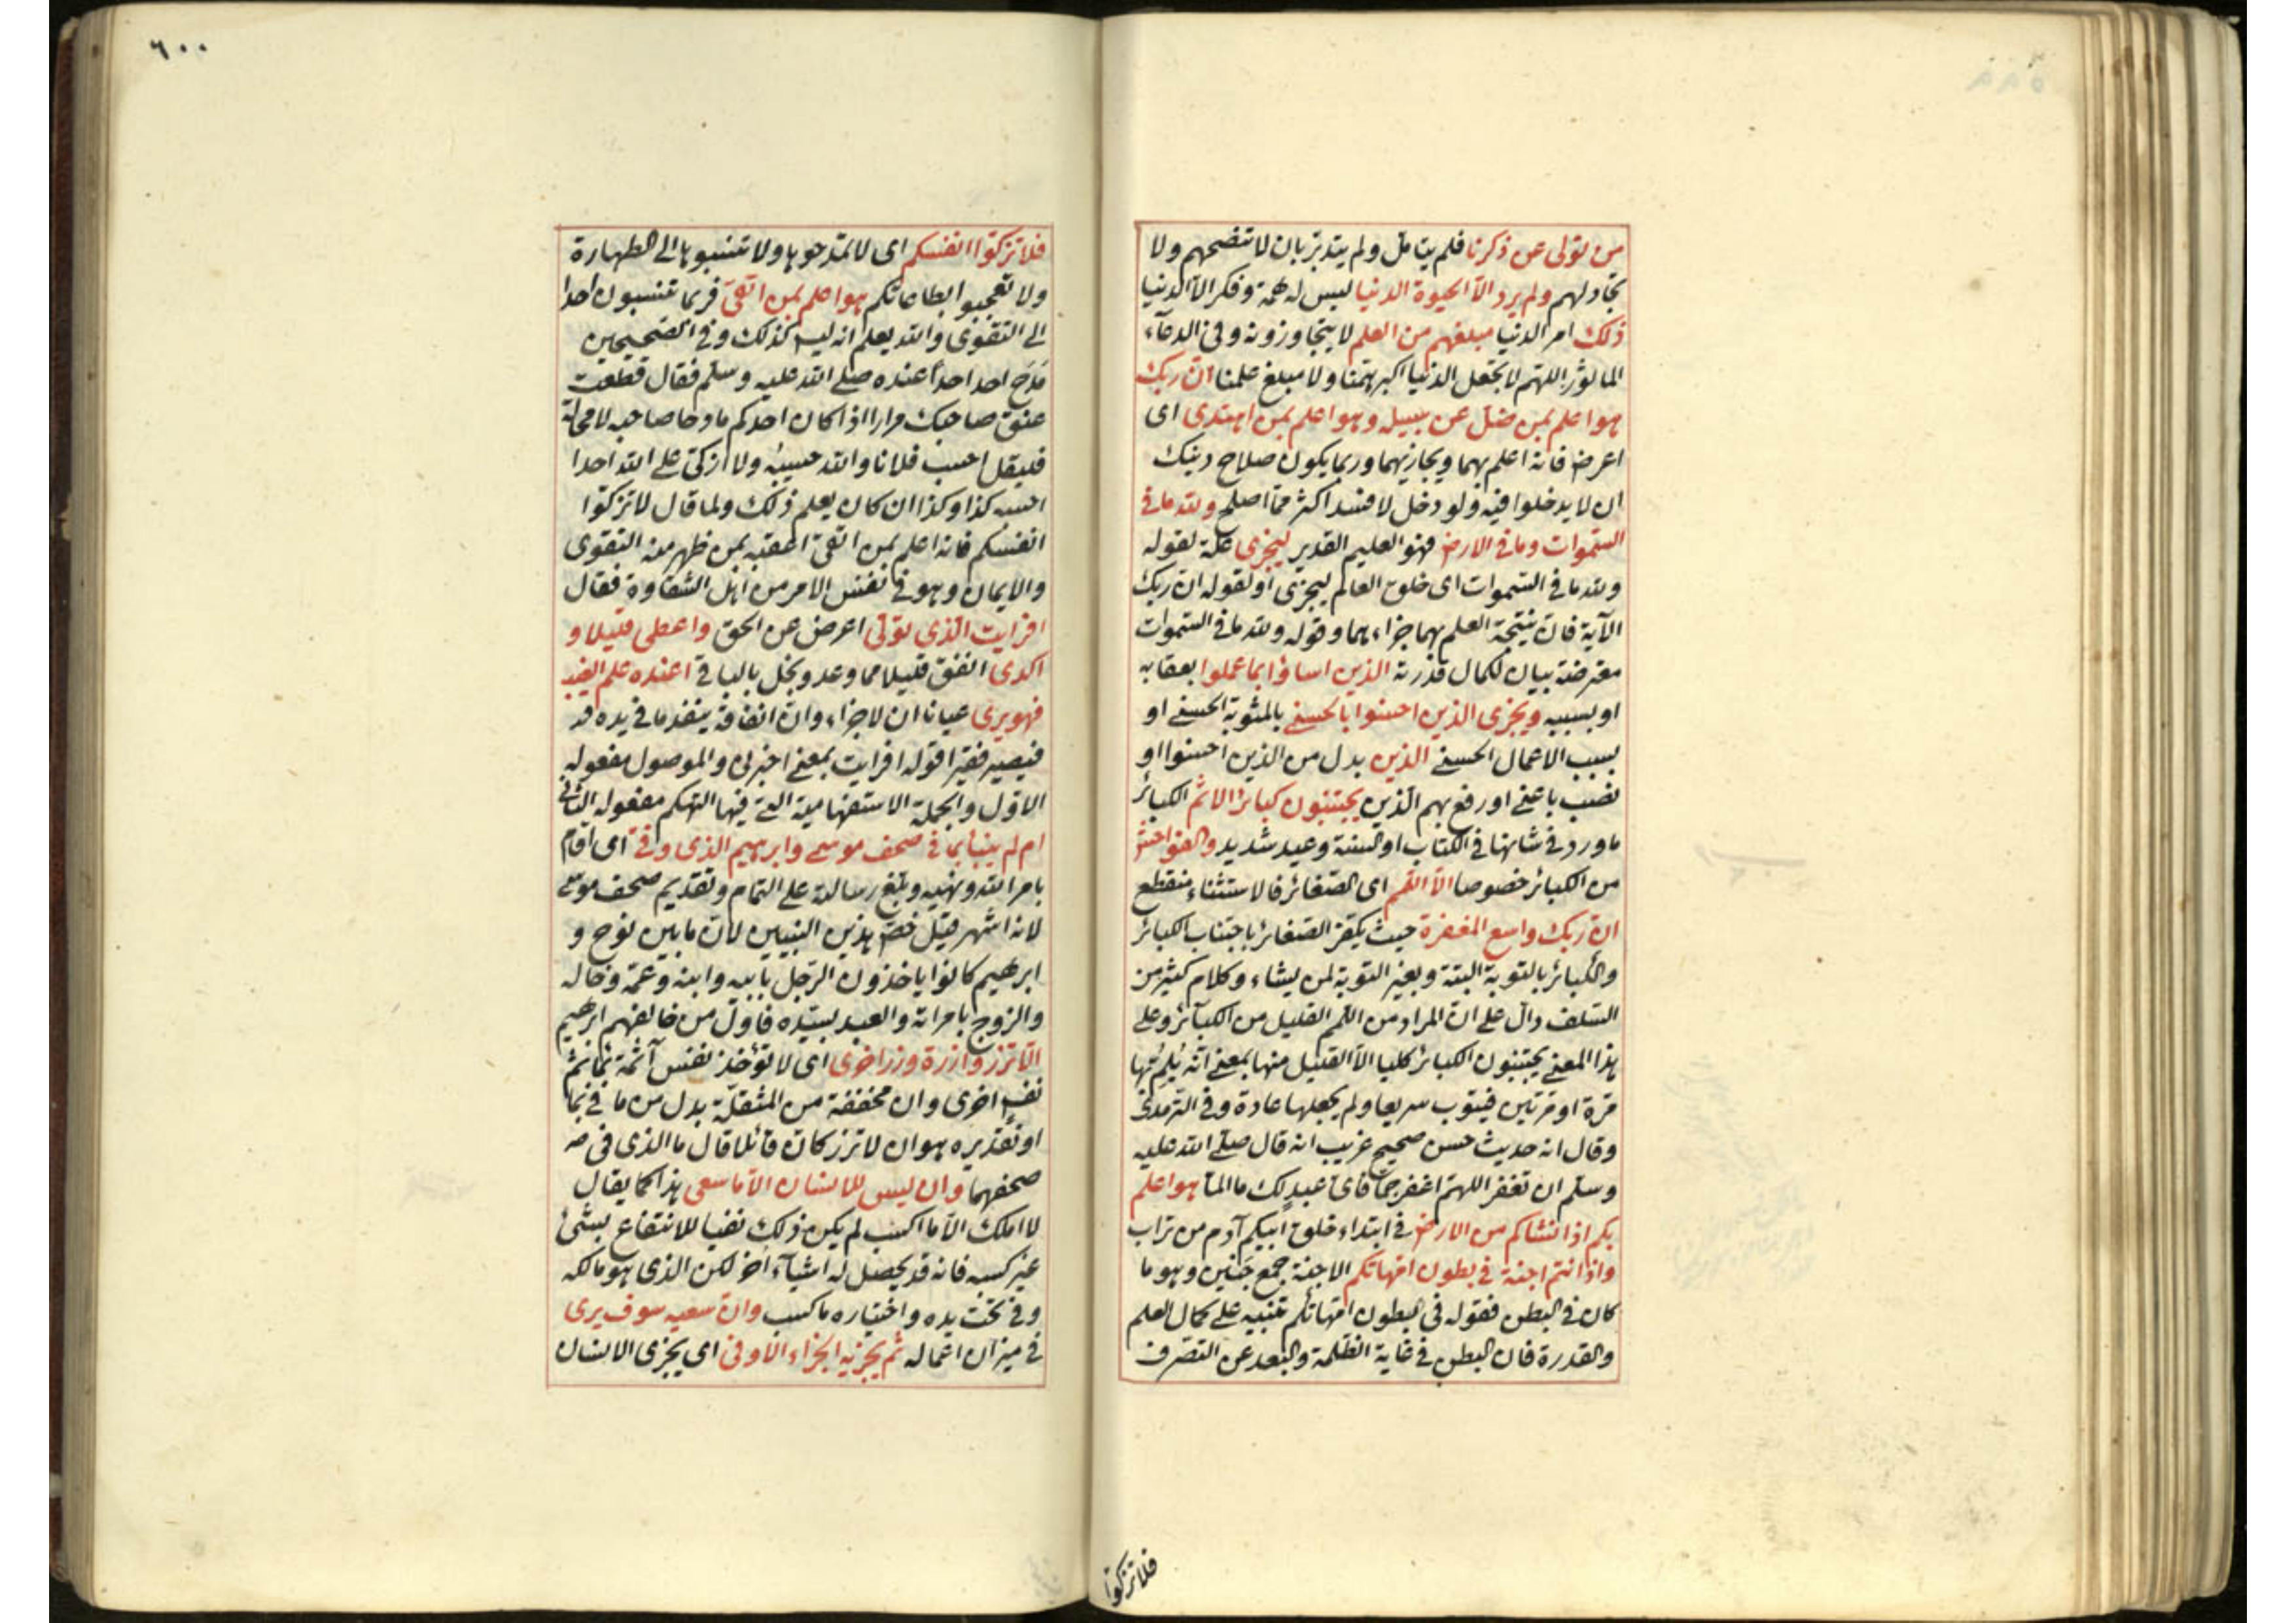 من تولى عن ذكرنا فلم يتامل ولم يتدبر بان لا تنصحهم ولا
تجادلهم ولم يرد الا الحيوة الدنيا ليس له همة وفكر الا الدنيا
ذلك امر الدنيا مبلغهم من العلم لا يتجاوزونه وفي الدعاء
الماثور اللهم لا تجعل الدنيا اكبر همنا ولا مبلغ علمنا ان ربك
هو اعلم بمن ضل عن سبيله وهو اعلم بمن اهتدى اى
اعرض فانه اعلم بهما ويجازيهما وربما يكون صلاح دينك
ان لا يدخلوا فيه ولو دخل لافسد اكثر مما اصلح ولله ما في
السموات وما في الارض فهو العليم القدير ليجزى علة لقوله
ولله ما في السموات اى خلق العالم ليجزى او لقوله ان ربك
الآية فان نتيجة العلم بهما جزاءهما وقوله ولله ما في السموات
معترضة بيان لكمال قدرته الذين اساؤا بما عملوا بعقابه
او بسببه ويجزى الذين احسنوا بالحسنى بالمثوبة الحسنى او
بسبب الاعمال الحسنى الذين بدل من الذين احسنوا او
نصب باعنى او رفع بهم الذين يجتنبون كبائر الاثم الكبائر
ما ورد في شانها في الكتاب او السنة وعيد شديد والفواحش
من الكبائر خصوصا الا اللمم اى الصغائر فالاستثناء منقطع
ان ربك واسع المغفرة حيث يكفر الصغائر باجتناب الكبائر
والكبائر بالتوبة البتة وبغير التوبة لمن يشاء وكلام كثير من
السلف دال على ان المراد من اللمم القليل من الكبائر وعلى
هذا المعنى يجتنبون الكبائر كليا الا القليل منها بمعنى انه يلم بها
مرة او مرتين فيتوب سريعا ولم يجعلها عادة وفي الترمذى
وقال انه حديث حسن صحيح غريب انه قال صلى الله عليه
وسلم ان تغفر اللهم اغفر جما فاى عبد لك ما الما هو اعلم
بكم اذ انشاكم من الارض في ابتداء خلق ابيكم آدم من تراب
واذ انتم اجنة في بطون امهاتكم الاجنة جمع جنين وهو ما
كان في البطن فقوله في بطون امهاتكم تنبيه على كمال العلم
والقدرة فان البطن في غاية الظلمة والبعد عن التصرف
فلا تزكوا
٦٠٠
فلا تزكوا انفسكم اى لا تمدحوها ولا تنسبوها الى الطهارة
ولا تعجبوا بطاعاتكم هو اعلم بمن اتقى فربما تنسبون احدا
الى التقوى والله يعلم انه ليس كذلك وفي الصحيحين
مدح احد احدا عنده صلى الله عليه وسلم فقال قطعت
عنق صاحبك مرارا اذا كان احدكم مادحا صاحبه لا محالة
فليقل احسب فلانا والله حسيبه ولا ازكى على الله احدا
احسبه كذا وكذا ان كان يعلم ذلك ولما قال لا تزكوا
انفسكم فانه اعلم بمن اتقى اعقبه بمن ظهر منه التقوى
والايمان وهو في نفس الامر من اهل الشقاوة فقال
افرايت الذى تولى اعرض عن الحق واعطى قليلا و
اكدى انفق قليلا مما وعد وبخل بالباقى اعنده علم الغيب
فهو يرى عيانا ان لا جزاء وان انفاقه ينفد ما في يده قد
فيصير فقيرا قوله افرايت بمعنى اخبرنى والموصول مفعوله
الاول والجملة الاستفهامية التى فيها التهكم مفعوله الثانى
ام لم ينبأ بما في صحف موسى وابرهيم الذى وفى اى اقام
بامر الله ونهيه وبلغ رسالته على التمام وتقديم صحف موسى
لانه اشهر قيل خص هذين النبيين لان ما بين نوح و
ابرهيم كانوا ياخذون الرجل بابيه وابنه وعمه وخاله
والزوج بامراته والعبد بسيده فاول من خالفهم ابرهيم
الا تزر وازرة وزر اخرى اى لا تؤخذ نفس آثمة بما ثم
نفس اخرى وان مخففة من المثقلة بدل من ما في بما
او تقديره هو ان لا تزر كان قائلا قال ما الذى فى صـ
صحفهما وان ليس للانسان الا ما سعى هذا كما يقال
لا املك الا ما اكسب لم يكن ذلك نفيا للانتفاع بشئ
غير كسبه فانه قد يحصل له اشياء اخر لكن الذى هو مالكه
وفي تحت يده واختياره ما كسب وان سعيه سوف يرى
في ميزان اعماله ثم يجزيه الجزاء الاوفى اى يجزى الانسان